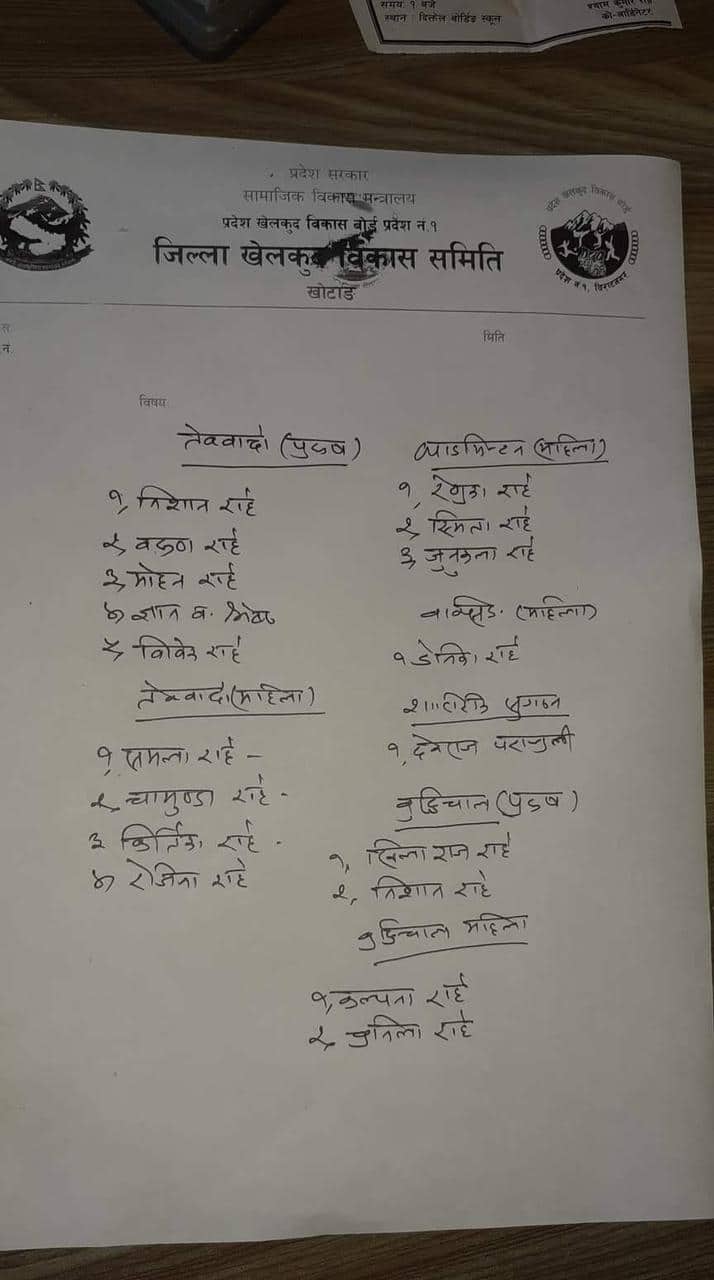 समय: १ बजे
स्थान : दित्तेल बोर्डिङ स्कूल
श्याम कुमार राई
को-अर्डिनेटर
प्रदेश सरकार
सामाजिक विकास मन्त्रालय
प्रदेश खेलकुद विकास बोर्ड प्रदेश नं.१
जिल्ला खेलकुद विकास समिति
खोटाङ
प्रदेश खेलकुद विकास बोर्ड
प्रदेश नं. १, विराटनगर
मिति
विषय:
तेक्वान्दो (पुरुष)
१, निशान राई
२,
३, मोहन राई
४, ज्ञान ब. श्रेष्ठ
५, विवेक राई
तेक्वान्दो (महिला)
१, राई -
२, चामुण्डा राई -
३ किर्तिका राई -
४, रोजिना राई
ब्याडमिन्टन (महिला)
१, रेणुका राई
२, स्मिता राई
३, जुनकला राई
बक्सिङ (महिला)
१ राई
शारीरिक सुगठन
१, देवराज पराजुली
बुद्धिचाल (पुरुष)
१, राज राई
२, निशान राई
बुद्धिचाल महिला
१, कल्पना राई
२, राई